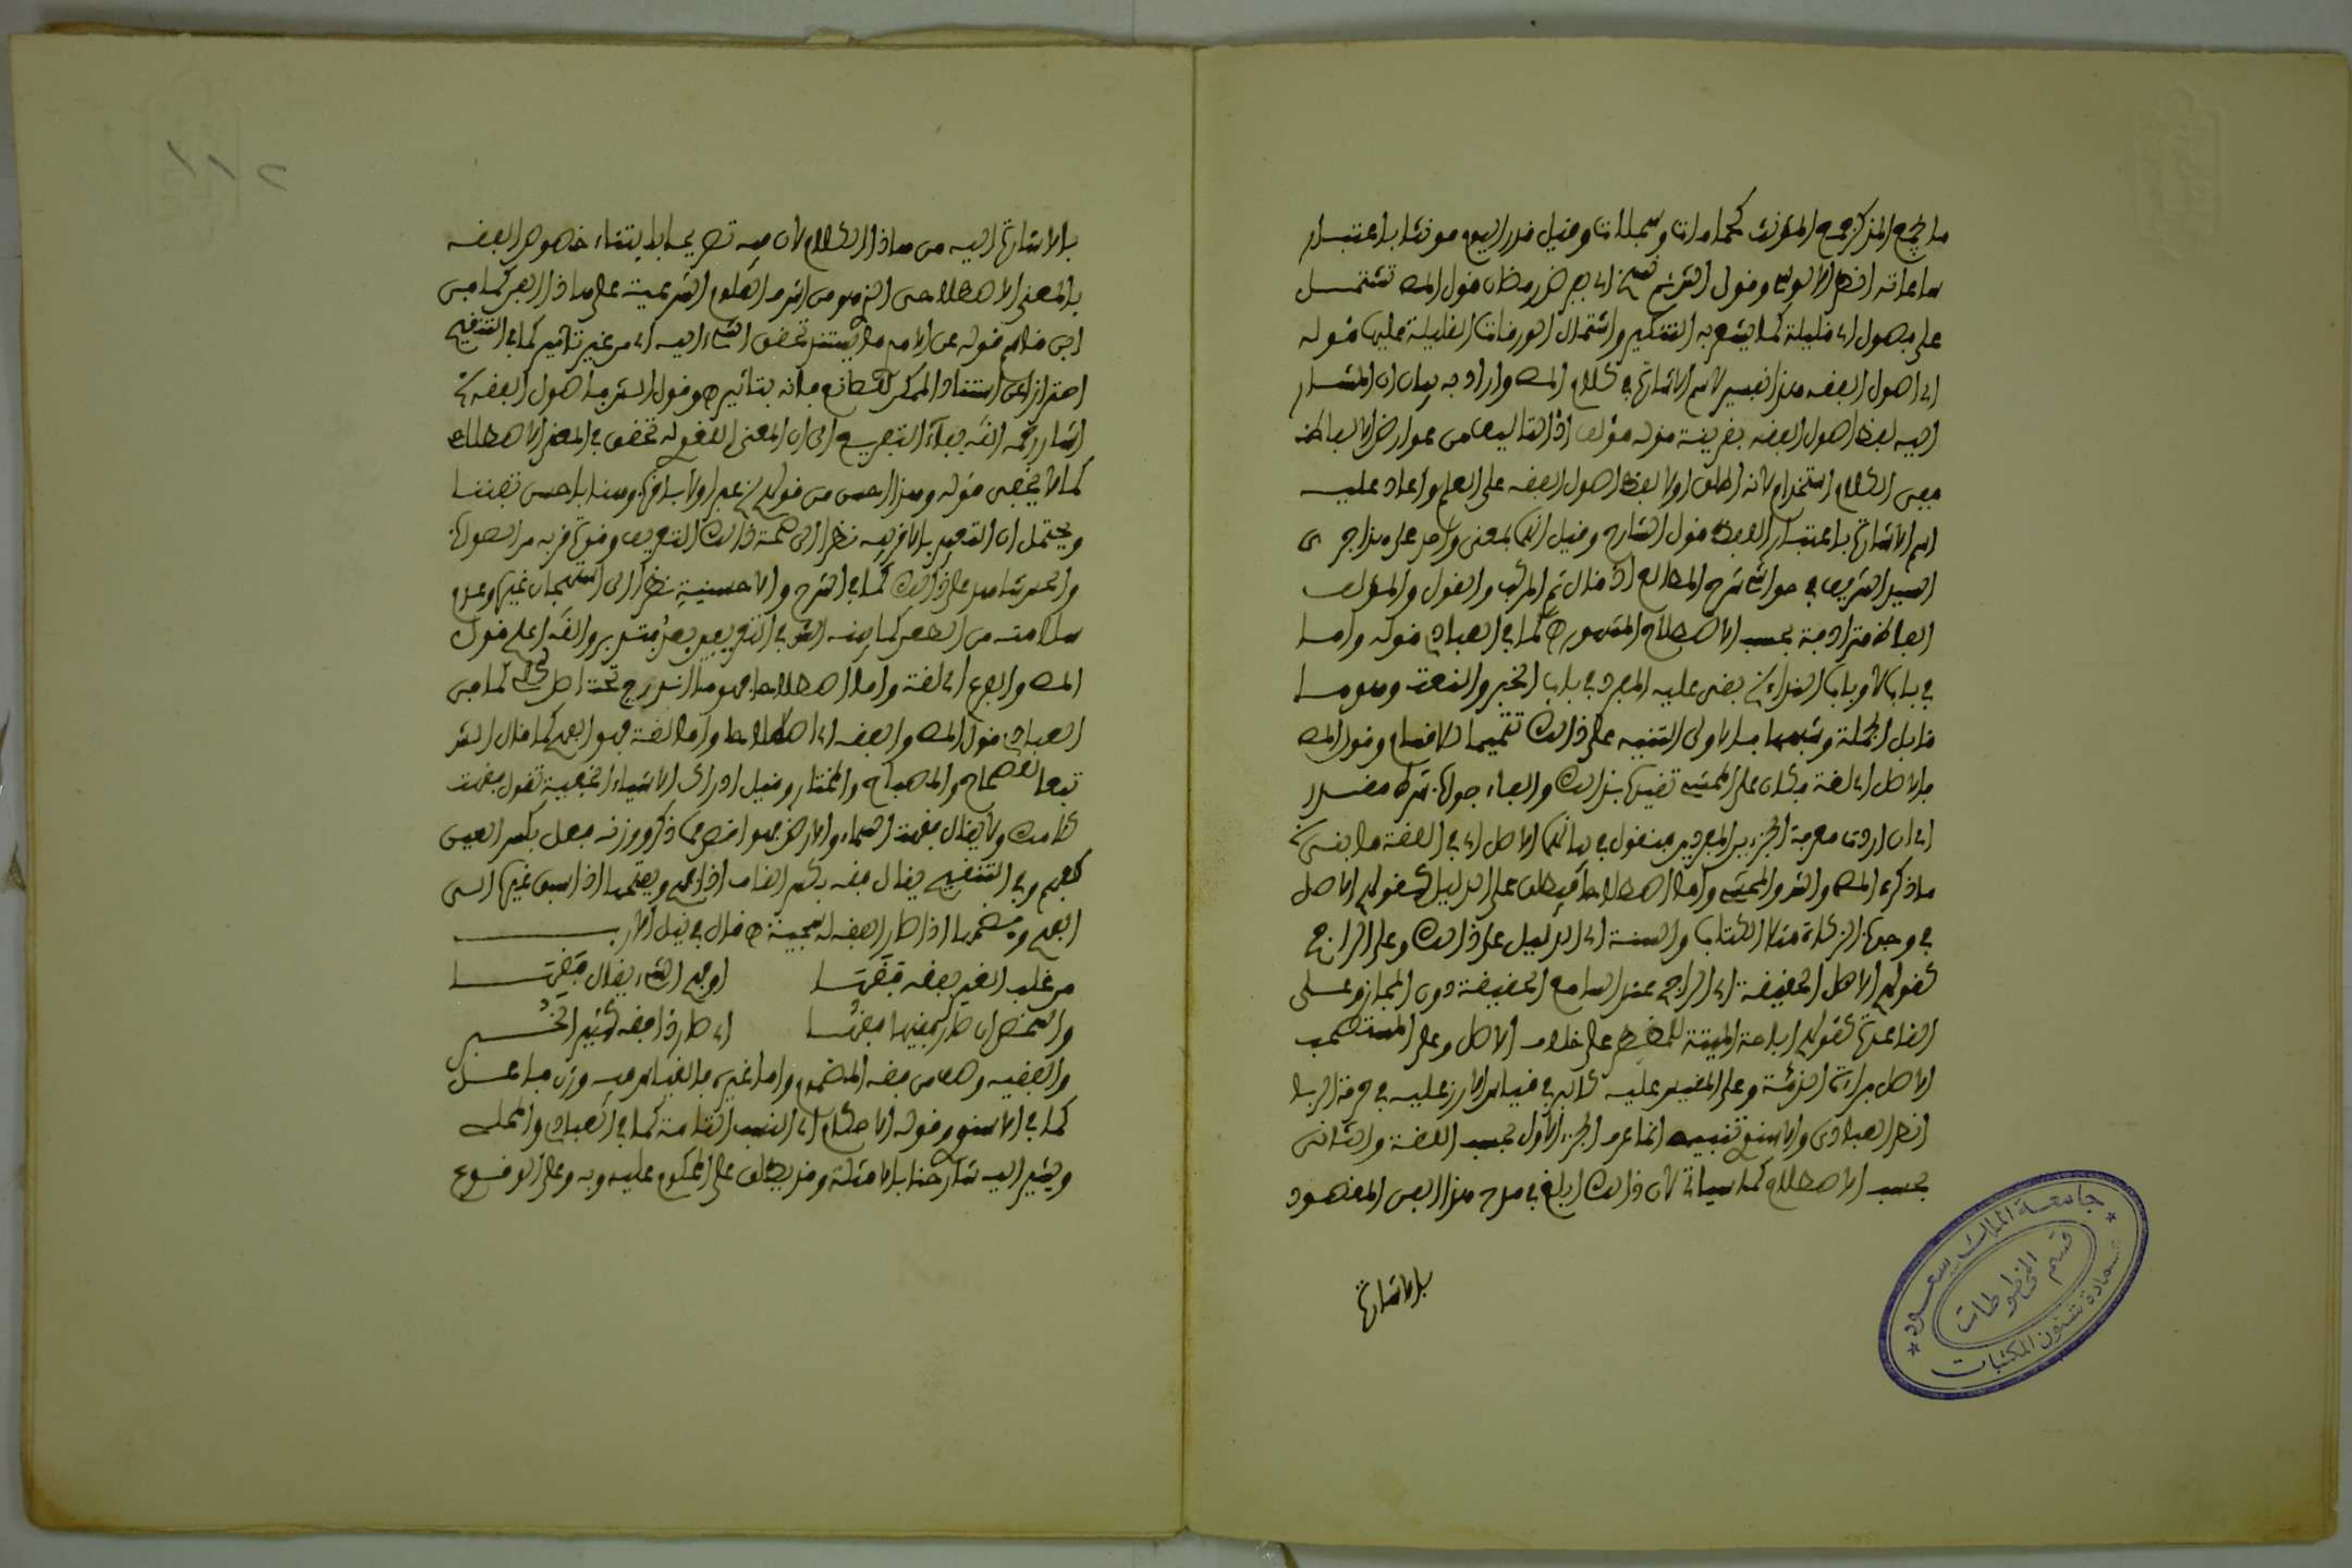 ما جمع المذكر جمع المؤنث كحمامات وسجلات وقيل قدر اليوم مؤنثا باعتبار
ساعاته انظر الابوابي وقول الشرح من ابي جر ضر رمضان قول المص تشتمل
على فصول اي قليلة كما يشعر به التنكير واشتمال الورقات القليلة عليها قوله
اي اصول الفقه هذا تفسير لاسم الاشارة في كلام المص واراد به بيان ان المشار
اليه لفظ اصول الفقه بقرينة قوله مؤلف اذ التاليف من عوارض الالفاظ
ففي الكلام استخدام لانه اطلق اولا لفظ اصول الفقه على العلم واعاد عليه
اسم الاشارة باعتبار اللفظ قول الشارح وقيل انهما بمعنى واحد على هذا جرى
السيد الشريف في حواشي شرح المطالع اذ قال ثم المركب والقول والمؤلف
الفاظ مترادفة بحسب الاصطلاح المشهور ه كما في العبادي قوله واما
في باب لا وباب النداء بقي عليه المفرد في باب الخبر والنعت وهو ما
قابل الجملة وشبهها فالاولى التنبيه على ذلك تتميما للاقسام وقول المص
فالاصل اي لغة فكان على المحشي تقييده بذلك والفاء جواب شرط مقدر
اي ان اردت معرفة الجزءين المفردين فنقول في بيانهما الاصل اي في اللغة ما ينبني
ما ذكره المص والشر والمحشي واما اصطلاحا فيطلق على الدليل كقولهم الاصل
في وجوب الزكاة مثلا الكتاب والسنة اي الدليل على ذلك وعلى الراجح
كقولهم الاصل الحقيقة اي الراجح عند السامع الحقيقة دون المجاز وعلى
القاعدة كقولهم اباحة الميتة للمضطر على خلاف الاصل وعلى المستصحب
الاصل براءة الذمة وعلى المقيس عليه كالبر في قياس الارز عليه في حرمة الربا
انظر العبادي والاسنوي تنبيه انما عرف الجزء الاول بحسب اللغة والثاني
بحسب الاصطلاح كما سياتي لان ذلك ابلغ في مدح هذا الفن المقصود
بالاشارة
جامعة الملك سعود
قسم المخطوطات
عمادة شئون المكتبات
بالاشارة اليه من هاذا الكلام لان فيه تصريحا بابتناء خصوص الفقه
بالمعنى الاصطلاحي الذي هو من اشرف العلوم الشرعية على هاذا الفن كما في
ابن قاسم قوله عن الامر ما يستند تحقق الشيء اليه اي من غير تاثير كما في التنقيح
احترازا عن استناد الممكن للصانع فانه بتاثير ه وقول الشر فاصول الفقه
اشار رحمه الله بفاء التفريع الى ان المعنى اللغوي له تحقق في المعنى الاصطلاحي
كما لا يخفى قوله وهذا احسن من قولهم
ويحتمل ان التعبير بالاقربيه نظرا الى صحة ذلك التعريف وقوة قربه من الصواب
والحس شاهد على ذلك كما في الشرح والاحسنية نظرا الى استهجان غيره وعدم
سلامته من الضعف كما بينه الشر في التعريفين بعد فتدبر والله اعلم قول
المص والفرع اي لغة واما اصطلاحا فهو ما اندرج تحت اصل كلي كما في
العبادي قول المص والفقه اي اصطلاحا واما لغة فهو الفهم كما قال الشر
تبعا للصحاح والمصباح والمختار وقيل ادراك الاشياء الخفية تقول فقهت
كلامك ولا يقال فقهت السماء والارض فهو اخص مما ذكر ووزنه فعل بكسر العين
كفهم وفي التنقيح يقال فقه بكسر القاف اذا فهم وبفتحها اذا سبق غيره الى
الفهم وبضمها اذا صار الفقه له سجية ه قال في نيل الارب
من غلب الغير بفقه فقها او فهم الشيء يقال فقها
والشخص ان صار فقيها فقها اي صار ذا فقه كثير الخبر
والفقيه وصف من فقه المضموم واما غيره فالقياس فيه وزن فاعل
كما في الاسنوي قوله الاحكام اي النسب التامة كما في العبادي والمحلي
ويشير اليه شارحنا بالامثلة وقد يطلق على المحكوم عليه وبه وعلى الوقوع